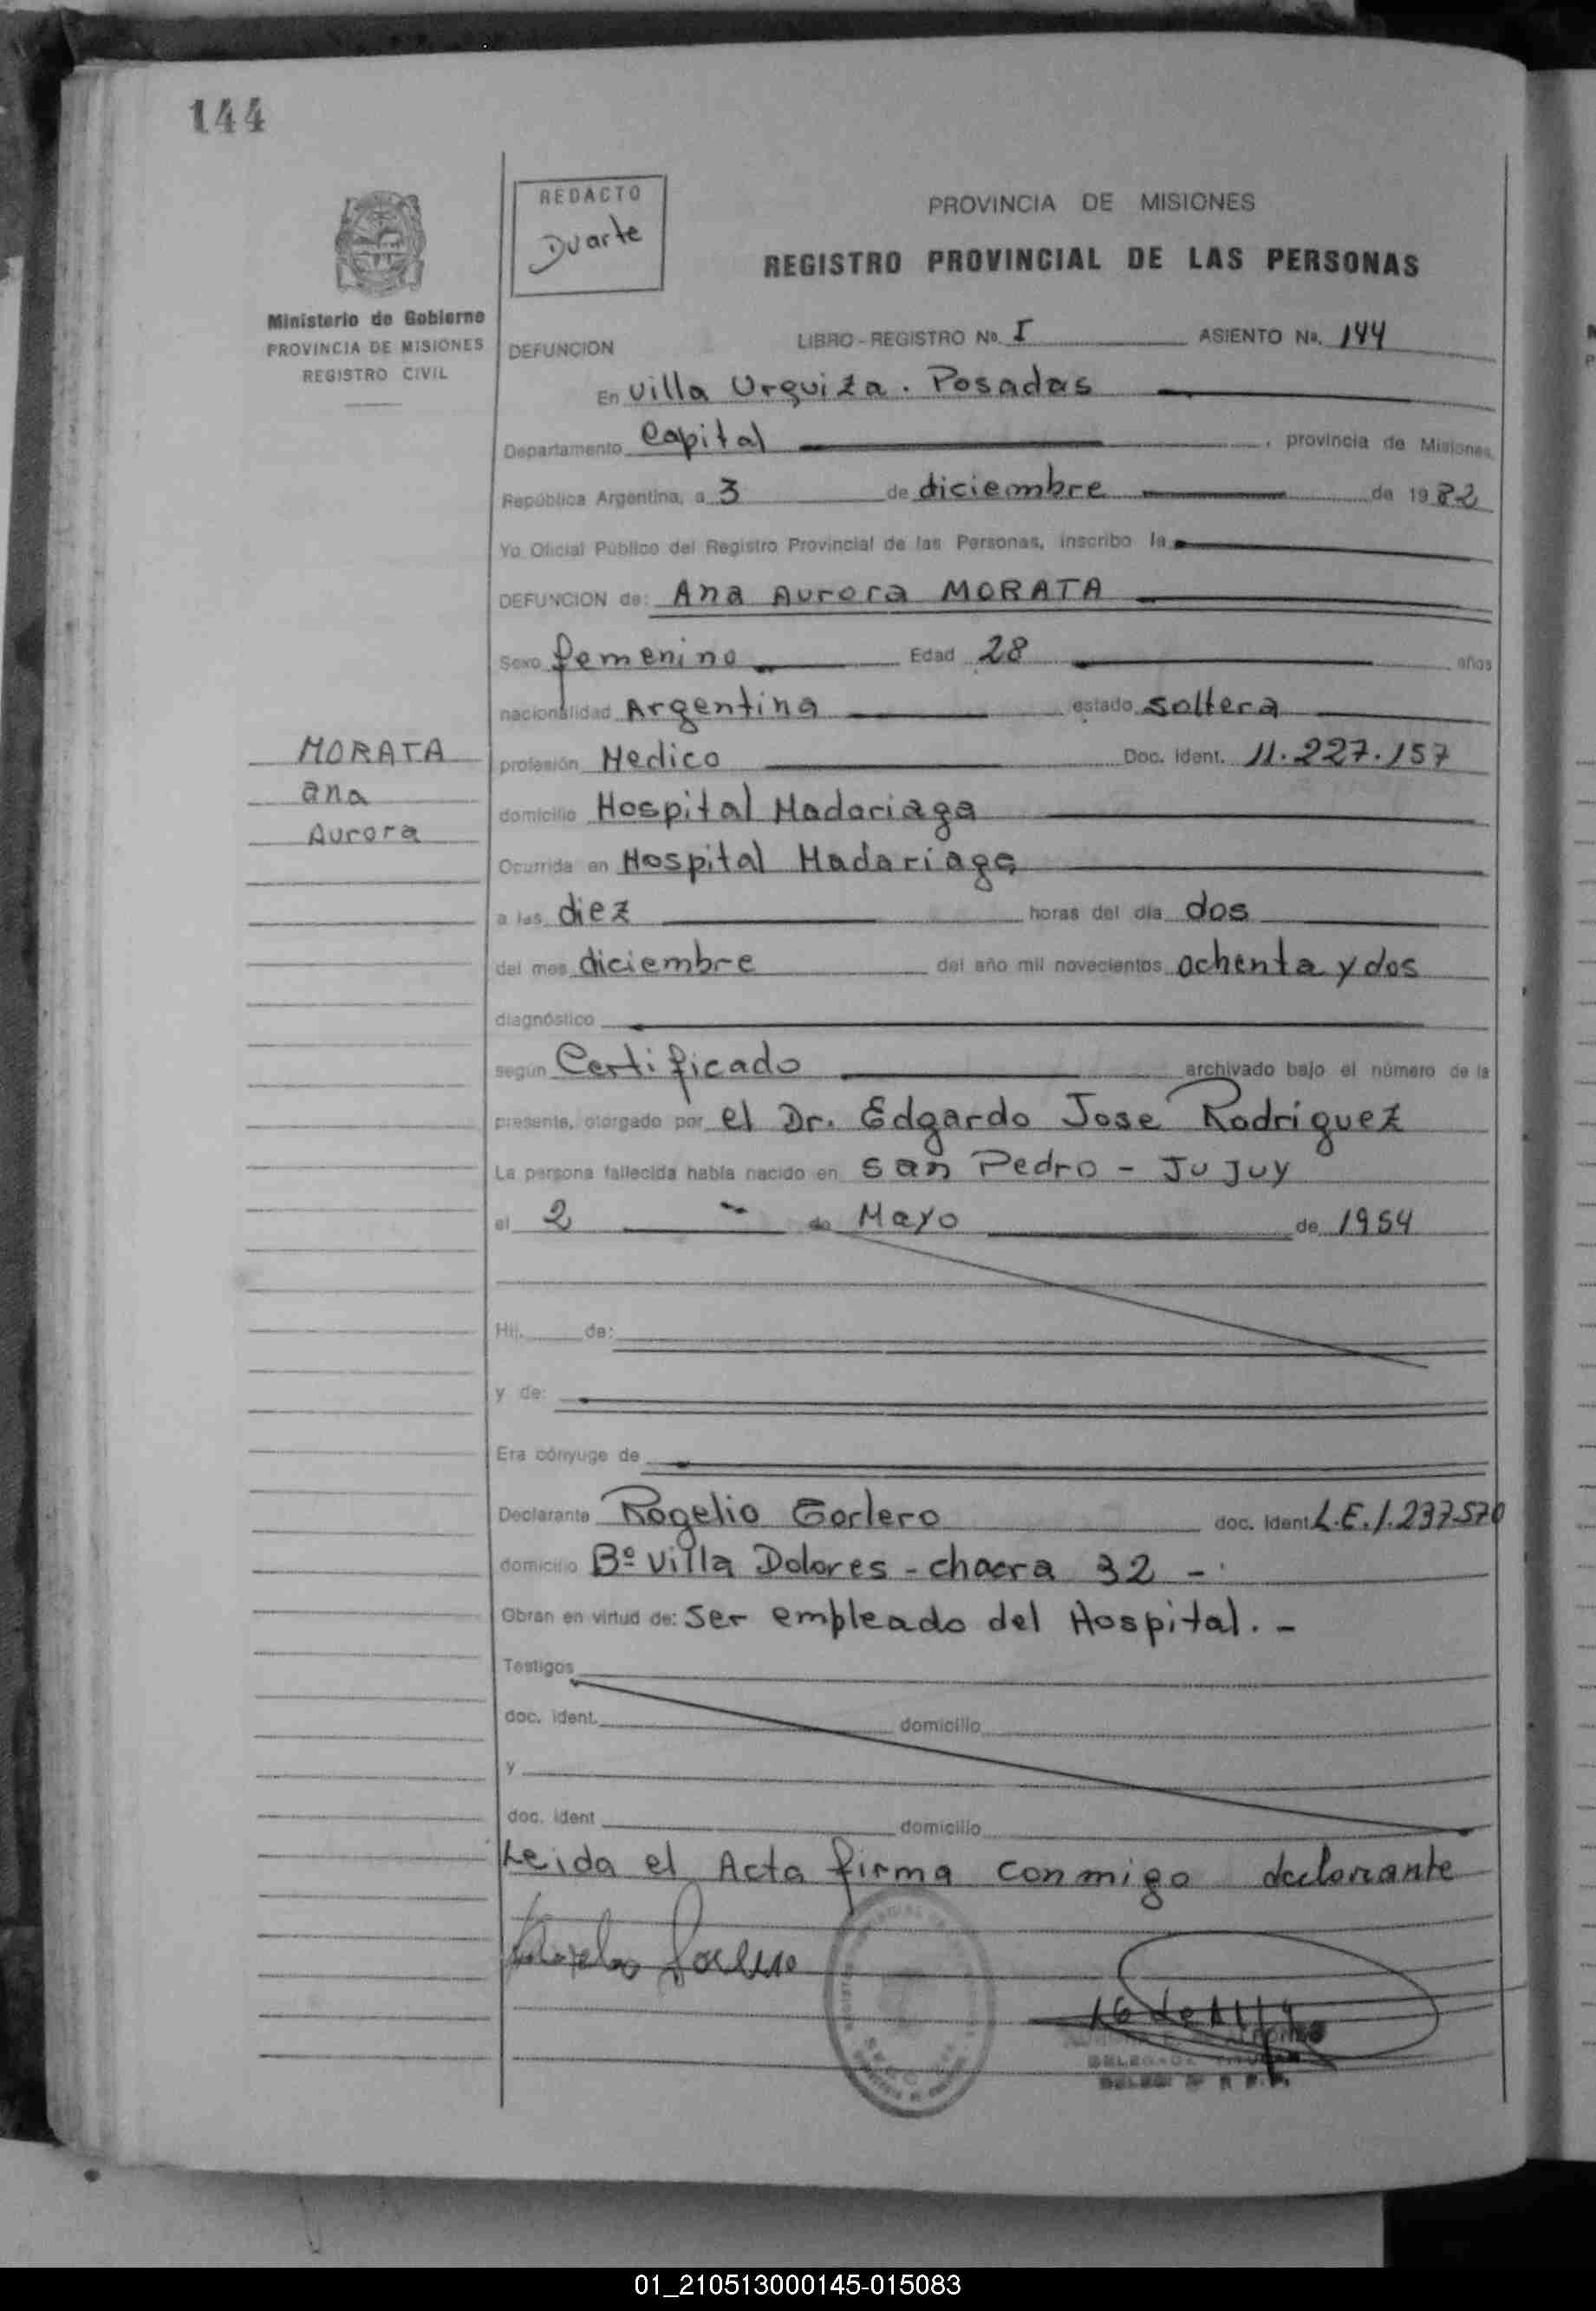 144
REDACTO
Duarte
Ministerio de Gobierno
PROVINCIA DE MISIONES
REGISTRO CIVIL
PROVINCIA DE MISIONES
REGISTRO PROVINCIAL DE LAS PERSONAS
DEFUNCION LIBRO - REGISTRO No. I ASIENTO No. 144
En Villa Urquiza. Posadas
Departamento Capital, provincia de Misiones,
República Argentina, a 3 de diciembre de 1982
Yo Oficial Público del Registro Provincial de las Personas, inscribo la
DEFUNCION de: Ana Aurora MORATA
Sexo femenino Edad 28 años
nacionalidad Argentina estado soltera
MORATA
Ana
Aurora
profesión Medico Doc. Ident. 11.227.157
domicilio Hospital Madariaga
Ocurrida en Hospital Madariaga
a las diez horas del día dos
del mes diciembre del año mil novecientos ochenta y dos
diagnóstico
según Certificado archivado bajo el número de la
presente, otorgado por el Dr. Edgardo Jose Rodriguez
La persona fallecida había nacido en San Pedro - Jujuy
el 2 de Mayo de 1954
Hij. de:
y de:
Era cónyuge de
Declarante Rogelio Gorlero doc. Ident. L.E.1.237.570
domicilio Bº Villa Dolores - chacra 32 -
Obran en virtud de: Ser empleado del Hospital. -
Testigos
doc. ident. domicilio
y
doc. ident domicilio
Leida el Acta firma conmigo declarante
01_210513000145-015083